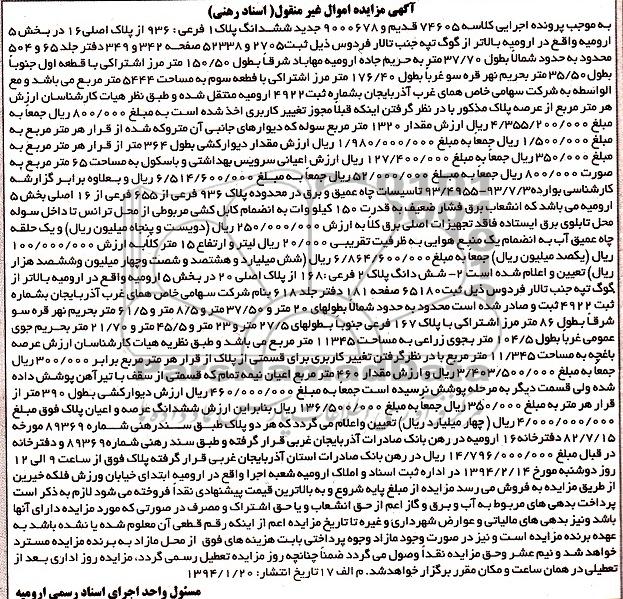 آگهی مزایده اموال غیر منقول( اسناد رهنی)
به موجب پرونده اجرایی کلاسه ۷۴۶۰۵ قدیم و ۹۰۰۰۶۷۸ جدید ششدانگ پلاک ۱ فرعی : ۹۳۶ از پلاک اصلی۱۶ در بخش ۵
ارومیه واقع در ارومیه بالاتر از گوگ تپه جنب تالار فردوس ذیل ثبت۲۷۰۵ و ۵۲۳۳۸ صفحه ۳۴۲ و ۳۴۹ دفتر جلد ۶۵ و ۵۰۴
محدود به حدود شمالاً بطول ۳۷/۷۰ متر به حریم جاده ارومیه مهاباد شرقاً بطول ۱۵۰/۵۰ متر مرز اشتراکی با قطعه اول جنوباً
بطول ۳۵/۵۰ متر بحریم نهر قره سو غرباً بطول ۱۷۶/۴۰ متر مرز اشتراکی با قطعه سوم به مساحت ۵۴۴۴ متر مربع می باشد و مع
الواسطه به شرکت سهامی خاص همای غرب آذربایجان بشماره ثبت ۴۹۲۲ ارومیه منتقل شده و طبق نظر هیات کارشناسان ارزش
هر متر مربع از عرصه پلاک مذکور با در نظر گرفتن اینکه قبلاً مجوز تغییر کاربری اخذ شده است به مبلغ ۸۰۰/۰۰۰ ریال جمعاً به
مبلغ ۴/۳۵۵/۲۰۰/۰۰۰ ریال ارزش مقدار ۱۳۲۰ متر مربع سوله که دیوارهای جانبی آن متروکه شده از قرار هر متر مربع به
مبلغ ۱/۵۰۰/۰۰۰ ریال جمعاً به مبلغ ۱/۹۸۰/۰۰۰/۰۰۰ ریال ارزش مقدار دیوارکشی بطول ۳۶۴ متر از قرار هر متر مربع به
مبلغ ۳۵۰/۰۰۰ ریال جمعاً به مبلغ ۱۲۷/۴۰۰/۰۰۰ ریال ارزش اعیانی سرویس بهداشتی و باسکول به مساحت ۶۵ متر مربع به
صورت ۸۰۰/۰۰۰ ریال جمعاً به مبلغ ۵۲/۰۰۰/۰۰۰ ریال جمعاً به مبلغ ۶/۵۱۴/۶۰۰/۰۰۰ ریال و بعلاوه برابر گزارشه
کارشناسی بوارده ۹۳/۴۹۵۵-۹۳/۷/۳ تاسیسات چاه عمیق و برق در محدوده پلاک ۹۳۶ فرعی از ۶۵۵ فرعی از ۱۶ اصلی بخش ۵
ارومیه می باشد که انشعاب برق فشار ضعیف به قدرت ۱۵۰ کیلو وات به انضمام کابل کشی مربوطی از محل ترانس تا داخل سوله
محل تابلوی برق ایستاده فاقد تجهیزات اصلی برق کلاً به ارزش ۲۵۰/۰۰۰/۰۰۰ ریال (دویست و پنجاه میلیون ریال) و یک حلقه
چاه عمیق آب به انضمام یک منبع هوایی به ظرفیت تقریبی ۲۰/۰۰۰ لیتر و ارتفاع ۱۵ متر کلاً به ارزش ۱۰۰/۰۰۰/۰۰۰
ریال (یکصد میلیون ریال) جمعاً به مبلغ ۶/۸۶۴/۶۰۰/۰۰۰ ریال (شش میلیارد و هشتصد و شصت و چهار میلیون و ششصد هزار
ریال) تعیین و اعلام شده است ۲- شش دانگ پلاک ۲ فرعی :۱۶۸ از پلاک اصلی ۲۰ در بخش ۵ ارومیه واقع در ارومیه بالاتر از
گوگ تپه جنب تالار فردوس ذیل ثبت ۶۵۱۸۰ صفحه ۱۸۱ دفتر جلد ۶۱۸ بنام شرکت سهامی خاص همای غرب آذربایجان بشماره
ثبت ۴۹۲۲ ثبت و صادر شده است محدود به حدود شمالاً بطولهای ۲۰ متر و ۳۷/۵۰ متر و ۸/۵ متر و ۶۱/۵ متر بحریم نهر قره سو
شرقاً بطول ۸۶ متر مرز اشتراکی با پلاک ۱۶۷ فرعی جنوباً بطولهای ۲۷/۵ متر و ۲۳ متر و ۴۵/۵ متر و ۲۱/۷۰ متر بحریم جوی
عمومی غرباً بطول ۱۰۴/۵ متر بجوی زراعی به مساحت ۱۱۳۴۵ متر مربع می باشد و طبق نظریه هیات کارشناسان ارزش عرصه
باغچه به مساحت ۱۱/۳۴۵ متر مربع با در نظر گرفتن تغییر کاربری برای قسمتی از پلاک از قرار هر متر مربع برابر ۳۰۰/۰۰۰ ریال
جمعاً به مبلغ ۳/۴۰۳/۵۰۰/۰۰۰ ریال و ارزش مقدار ۴۶۰ متر مربع اعیان نیمه تمام که قسمتی از سقف با تیر آهن پوشش داده
شده ولی قسمت دیگر به مرحله پوشش نرسیده است جمعاً به مبلغ ۴۶۰/۰۰۰/۰۰۰ ریال ارزش دیوارکشی بطول ۳۹۰ متر از
قرار هر متر به مبلغ ۳۵۰/۰۰۰ ریال جمعاً به مبلغ ۱۳۶/۵۰۰/۰۰۰ ریال بنابراین ارزش ششدانگ عرصه و اعیان پلاک فوق مبلغ
۴/۰۰۰/۰۰۰/۰۰۰ ریال ( چهار میلیارد ریال) تعیین و اعلام می گردد که هر دو پلاک طبق سند رهنی شماره ۸۹۳۶۹ مورخه
۸۲/۷/۱۵ دفترخانه ۱۶ ارومیه در رهن بانک صادرات آذربایجان غربی قرار گرفته و طبق سند رهنی شماره ۸۹۳۶۹ و دفترخانه
در قبال مبلغ ۱۴/۷۹۶/۰۰۰/۰۰۰ ریال در رهن بانک صادرات استان آذربایجان غربی قرار گرفته پلاک فوق از ساعت ۹ الی ۱۲
روز دوشنبه مورخ ۱۳۹۴/۲/۱۴ در اداره ثبت اسناد و املاک ارومیه شعبه اجرا واقع در ارومیه ابتدای خیابان ورزش فلکه خیرین
از طریق مزایده به فروش می رسد مزایده از مبلغ پایه شروع و به بالاترین قیمت پیشنهادی نقداً فروخته می شود لازم به ذکر است
پرداخت بدهی های مربوط به آب و برق و گاز اعم از حق انشعاب و یا حق اشتراک و مصرف در صورتی که مورد مزایده دارای آنها
باشد ونیز بدهی های مالیاتی و عوارض شهرداری و غیره تا تاریخ مزایده اعم از اینکه رقم قطعی آن معلوم شده یا نشده باشد به
عهده برنده مزایده است و نیز در صورت وجود مازاد وجوه پرداختی بابت هزینه های فوق از محل مازاد به برنده مزایده مسترد
خواهد شد و نیم عشر و حق مزایده نقداً وصول می گردد ضمناً چنانچه روز مزایده تعطیل رسمی گردد، مزایده روز اداری بعد از
تعطیلی در همان ساعت و مکان مقرر برگزار خواهد شد. م الف ۱۷ تاریخ انتشار: ۱۳۹۴/۱/۲۰
مسئول واحد اجرای اسناد رسمی ارومیه